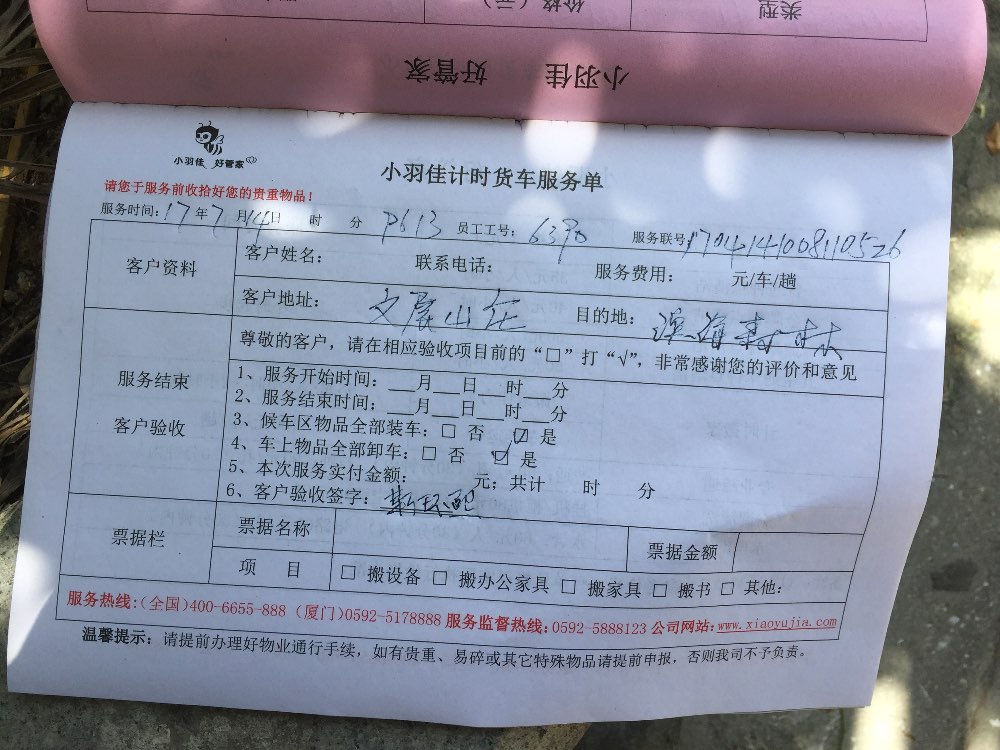 类型
价格（元）
小羽佳 好管家
小羽佳 好管家
小羽佳计时货车服务单
请您于服务前收拾好您的贵重物品！
服务时间：17年7月14日 时 分 P613 员工工号：6390 服务联号
客户资料
客户姓名： 联系电话： 服务费用： 元/车/趟
客户地址：文展山庄 目的地：
服务结束
客户验收
尊敬的客户，请在相应验收项目前的“□”打“√”，非常感谢您的评价和意见
1、服务开始时间：___月___日___时___分
2、服务结束时间：___月___日___时___分
3、候车区物品全部装车：□ 否 ☑ 是
4、车上物品全部卸车：□ 否 ☑ 是
5、本次服务实付金额： 元；共计 时 分
6、客户验收签字：
票据栏
票据名称 票据金额
项 目 □ 搬设备 □ 搬办公家具 □ 搬家具 □ 搬书 □ 其他：
服务热线：（全国）400-6655-888（厦门）0592-5178888 服务监督热线：0592-5888123 公司网站：www.xiaoyujia.com
温馨提示：请提前办理好物业通行手续，如有贵重、易碎或其它特殊物品请提前申报，否则我司不予负责。